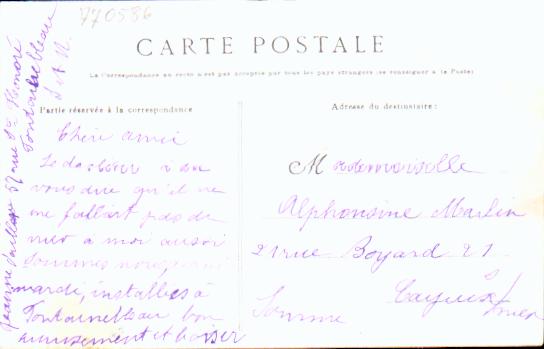 770586
CARTE POSTALE
La Correspondance au recto n'est pas acceptée par tous les pays étrangers (se renseigner à la Poste)
Partie réservée à la correspondance
Adresse du destinataire :
Chère amie
Le docteur
vous dire qu'il ne
me fallait pas de
mer a moi aussi
sommes
mardi, installées à
Fontainebleau bon
amusement et baiser
Mademoiselle
Alphonsine Marlin
21 rue Boyard 21
Cayeux s/mer
Somme
Jeanne 57 rue St Honoré
Fontainebleau
S et M.